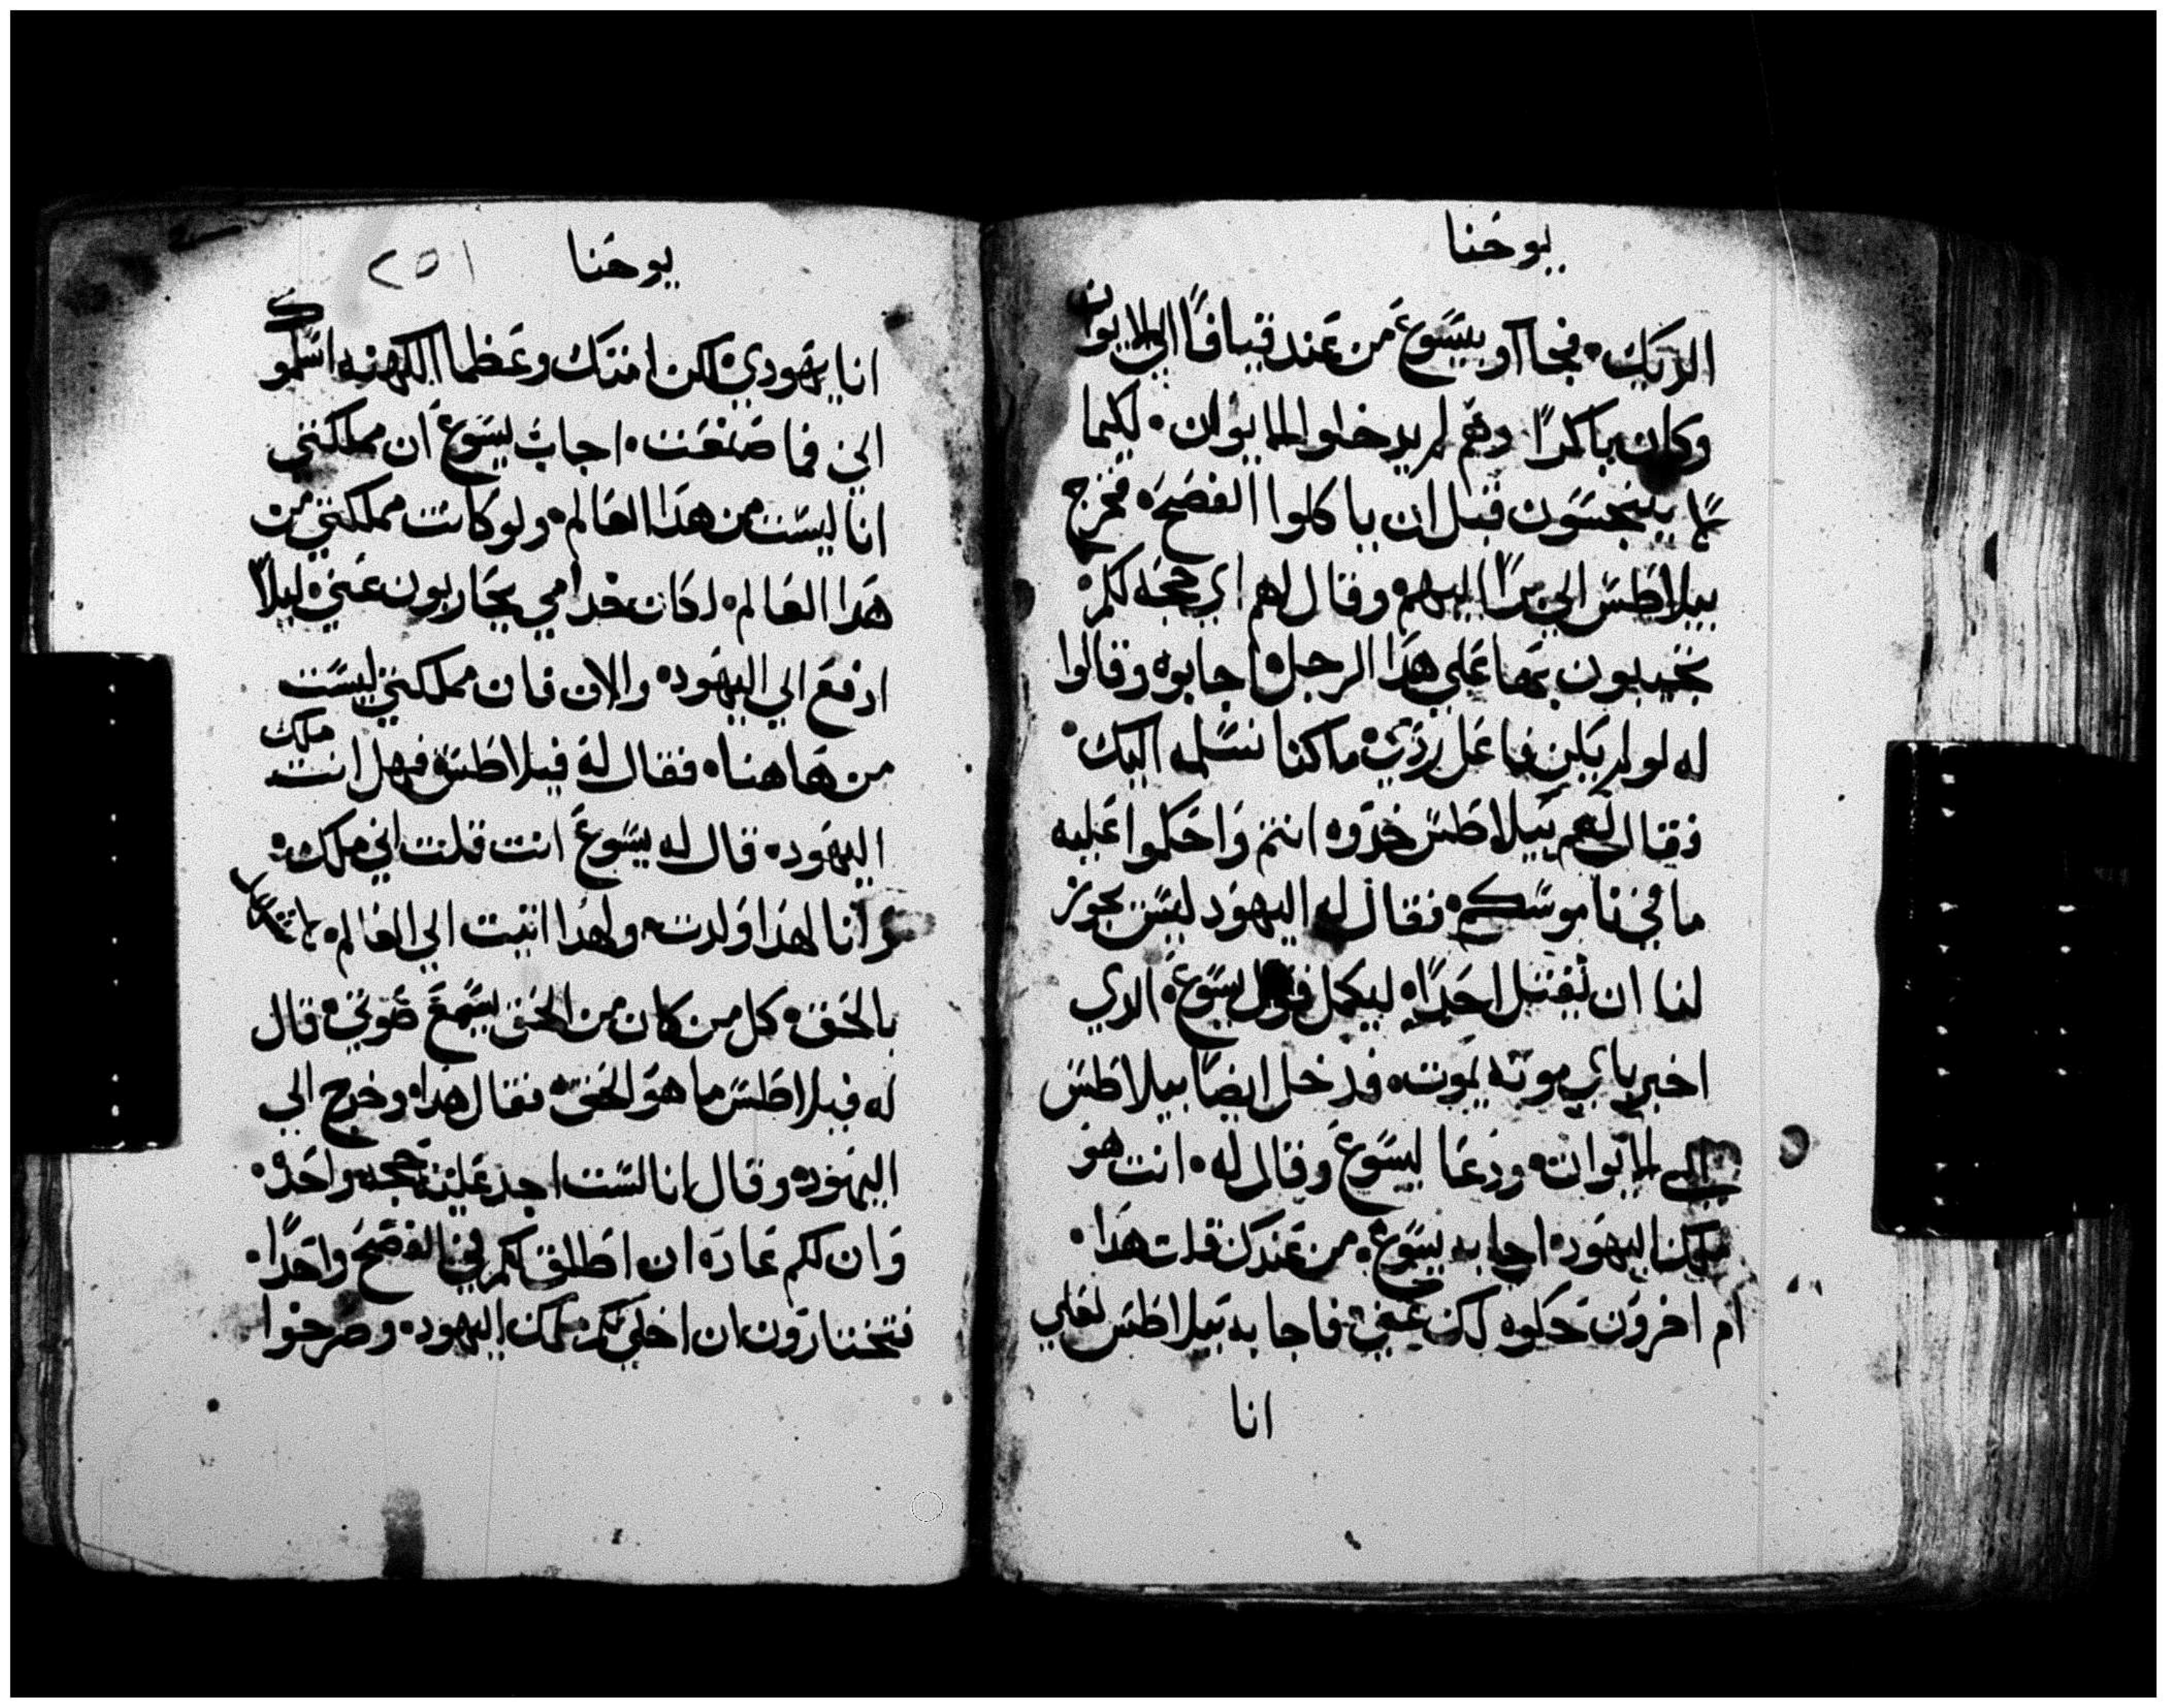 يوحنا
الديك۰ فجااو بيسوع من عند قيافا الي الايوان
وكان باكرا وهم لم يدخلوا الايوان۰ لكيما
لا يتنجسون قبل ان ياكلوا الفصح۰ فخرج
بيلاطس الي برا اليهم۰ وقال لهم اي حجه لكم۰
تجيبون بها علي هدا الرجل۰ اجابوه وقالوا
له لو لم يكن فاعل ردي۰ ما كنا نسلمه اليك۰
فقال لهم بيلاطس خدوه انتم واحكموا عليه
ما في ناموسكم۰ فقال له اليهود ليس يجوز
لنا ان نقتل احدا۰ ليكمل قول يسوع۰ الدي
اخبر باي موته يموت۰ فدخل ايضا بيلاطس
الي الايوان۰ ودعا ليسوع وقال له۰ انت هو
ملك اليهود۰ اجابه يسوع۰ من عندك قلت هدا۰
ام اخرون حكوه لك عني۰ فاجابه بيلاطس لعلي
انا
يوحنا ٢٥١
انا يهودي۰ لكن امتك وعظما الكهنه اسلموك
الي فما صنعت۰ اجاب يسوع ان مملكتي
انا ليست من هدا العالم۰ ولو كانت مملكتي من
هدا العالم۰ لكان خدامي يحاربون عني۰ ليلا
ادفع الي اليهود۰ والان فان مملكتي ليست
من هاهنا۰ فقال له فيلاطس۰ فهل انت ملك
اليهود۰ قال له يسوع انت قلت اني ملك۰
وانا لهدا ولدت۰ ولهدا اتيت الي العالم۰ لاشهد
بالحق۰ كل من كان من الحق يسمع صوتي۰ قال
له فيلاطس ما هو الحق۰ فقال هدا۰ وخرج الي
اليهود۰ وقال انا لست اجد عليه حجه واحده۰
وان لكم عاده ان اطلق لكم في الفصح واحدا۰
فتختارون ان اخلي لكم ملك اليهود۰ وصرخوا